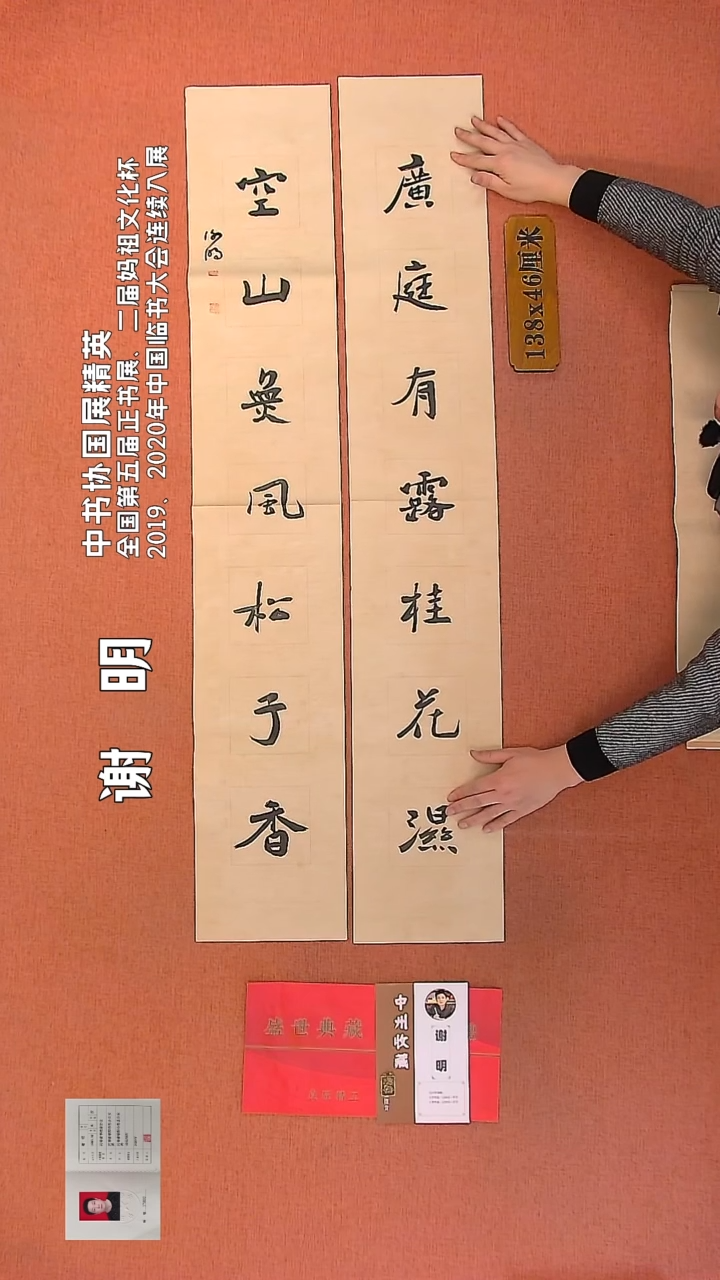 廣庭有露桂花濕
空山無風松子香
谢明
138x46厘米
中书协国展精英
全国第五届正书展、二届妈祖文化杯
2019、2020年中国临书大会连续入展
谢 明
盛世典藏
中州收藏
谢 明